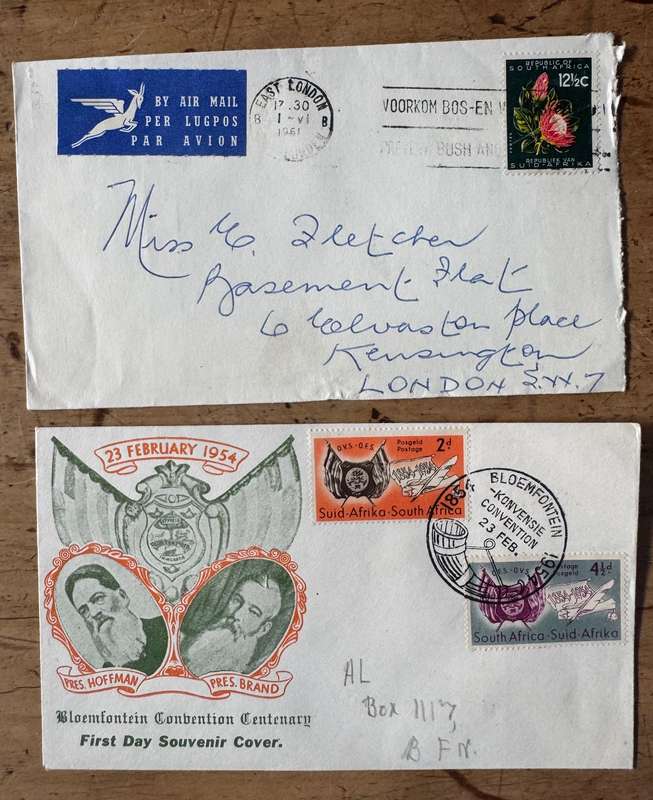 BY AIR MAIL
PER LUGPOS
PAR AVION
EAST LONDON
17.30
B 1-VI B
1961
VOORKOM BOS-EN
BUSH AND
REPUBLIC OF
SOUTH AFRICA
12½c
REPUBLIEK VAN
SUID-AFRIKA
Miss C. Fletcher
Basement Flat
6 Elvaston Place
Kensington
LONDON S.W.7
23 FEBRUARY 1954
PRES. HOFFMAN
PRES. BRAND
Bloemfontein Convention Centenary
First Day Souvenir Cover.
O.V.S.-O.F.S.
Posgeld
Postage
2d
1854-1954
Suid-Afrika-South Africa
1854 BLOEMFONTEIN 1954
-KONVENSIE
CONVENTION
23 FEB.
O.F.S.-O.V.S.
Postage
Posgeld
4½d
1854-1954
South Africa-Suid-Afrika
AL
Box 1117,
BFN.